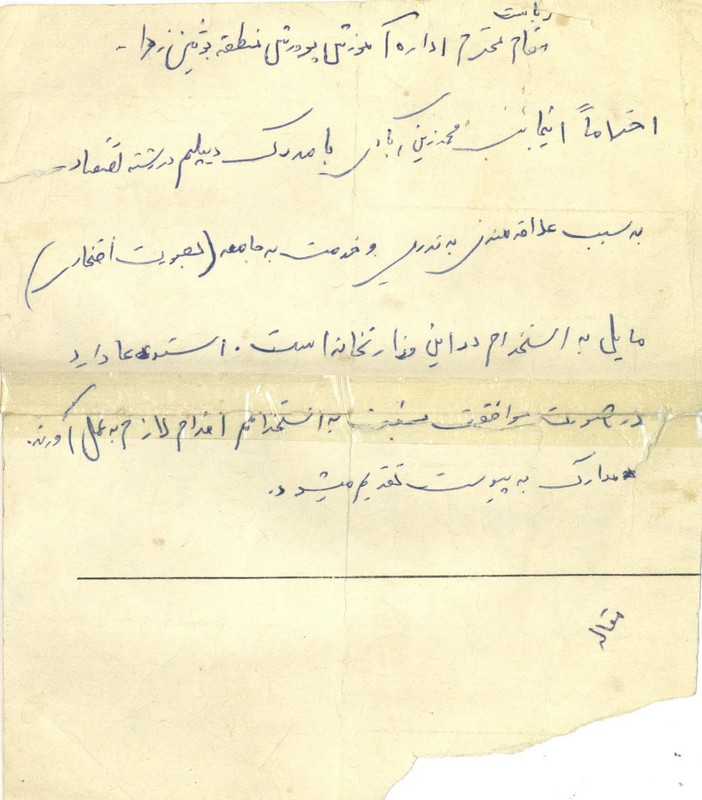 ریاست
مقام محترم اداره آموزش پرورش منطقه بوئین زهرا -
احتراماً اینجانب محمد زین آبادی با مدرک دیپلم در رشته اقتصاد
به سبب علاقه مندی به تدریس و خدمت به جامعه (بصورت افتخاری)
مایل به استخدام در این وزارتخانه است . استدعا دارد
در صورت موافقت نسبت به استخدامم اقدام لازم به عمل آورند.
مدارک به پیوست تقدیم میشود.
مقاله